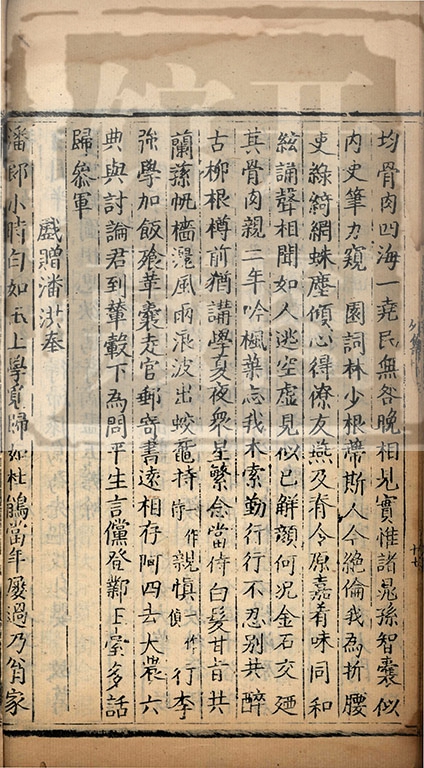 均骨肉四海一堯民無各晚相見實惟諸晁孫智囊似
內史筆力窺　園詞林少根蔕斯人今絕倫我為折腰
吏綠綺網蛛塵傾心得僚友燕及脊令原嘉肴味同和
絃誦聲相聞如人逃空虛見似已解顏何況金石交廼
其骨肉親三年吟楓葉忘我木索勤行行不忍別共醉
古柳根樽前猶講學夏夜衆星繁念當侍白髮甘旨共
蘭蓀帆檣濕風雨浪波出蛟黿持一作侍親慎一作偵行李
強學加飯飱華嚢走官郵寄書遠相存阿四去大甚六
典與討論君到輦轂下為問平生言儻登鄴王家多話
歸叅軍
戯贈潘洪奉
潘郎小時白如玉上學覓歸如杜鵑當年屢過乃翁家